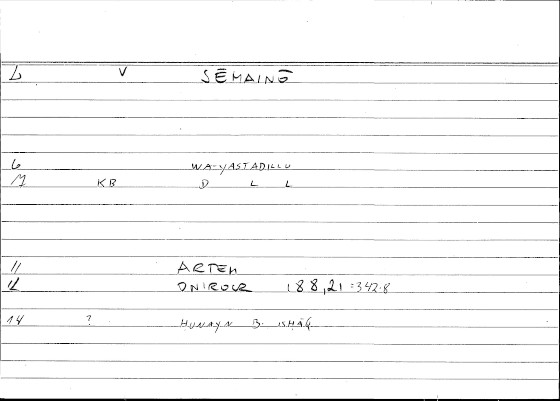 L V SĒMAINŌ
6 WA-YASTADILLU
M KB D L L
11 ARTEM
12 ONIROCR 188,21 = 342.8
14 ? HUNAYN B. ISHĀQ